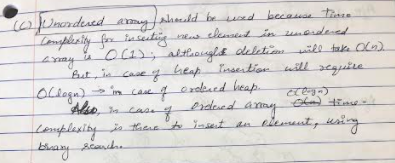 (c) Unordered array should be used because time
complexity for inserting new element in unordered
array is O(1); although deletion will take O(n).
But, in case of heap insertion will require
O(logn) → in case of ordered heap.
Also, in case of ordered array O(logn) time-
complexity is there to insert an element, using
binary search.